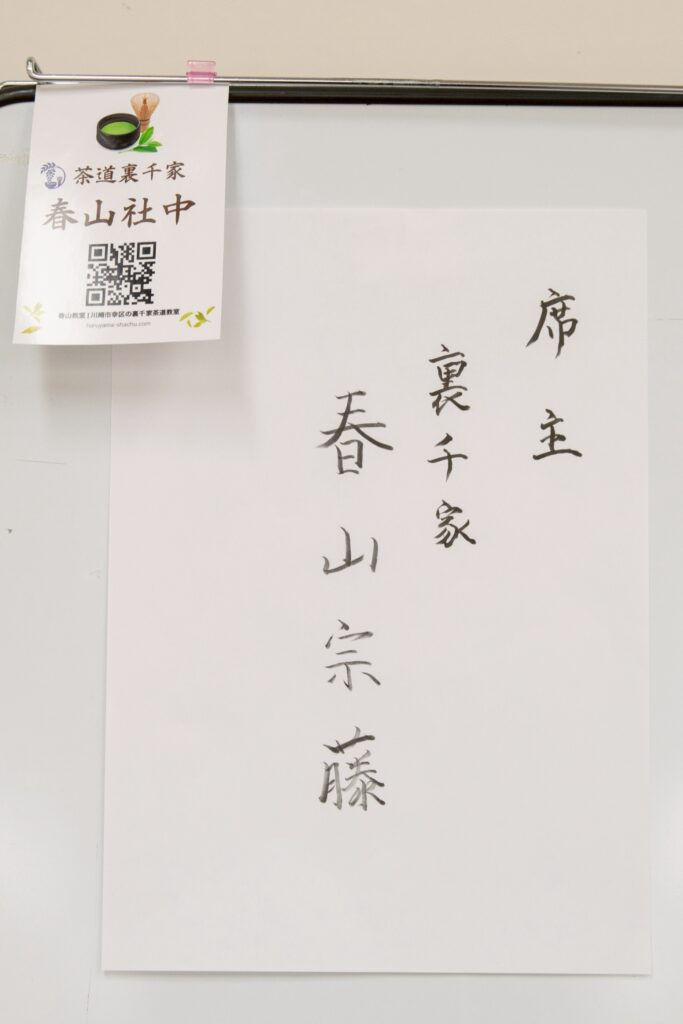 茶道裏千家
春山社中
春山教室 | 川崎市幸区の裏千家茶道教室
haruyama-shachu.com
席主
裏千家
春山宗藤